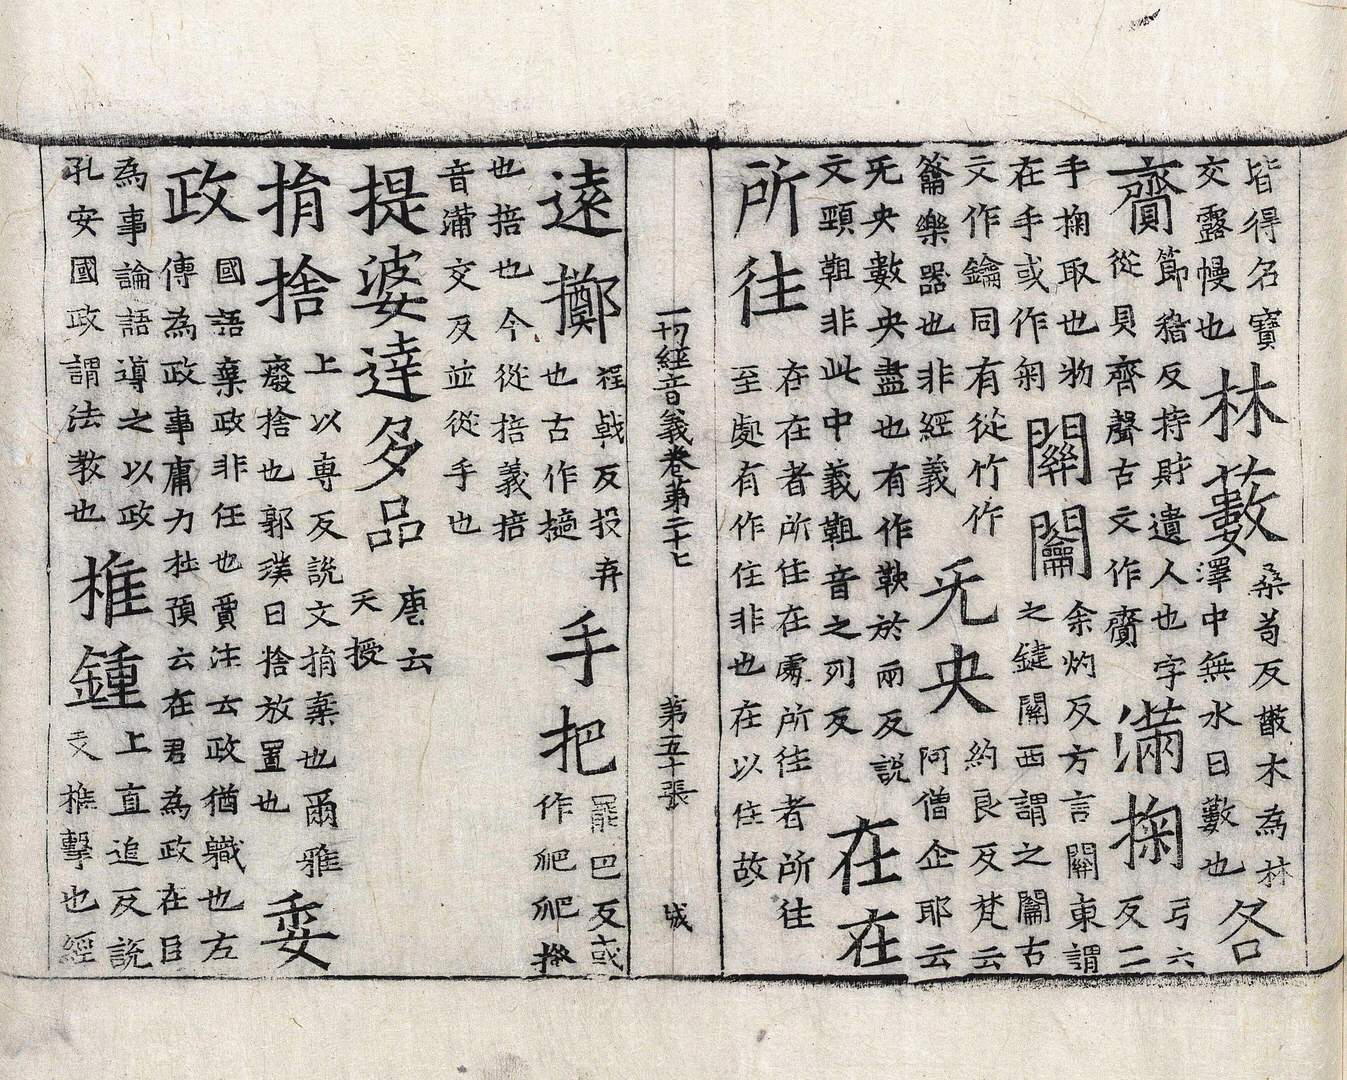 皆得名寶
交露幔也
林藪
桑苟反藂木為林
澤中無水曰藪也
各
齎
節稽反持財遺人也字
從貝齊聲古文作
滿掬
弓六
反二
手掬取也物
在手或作匊
關闟
余灼反方言關東謂
之鍵關西謂之闟古
文作鑰同有從竹作
籥樂器也非經義
旡央
約良反梵云
阿僧企耶云
旡央數央盡也有作鞅於兩反説
文頸靼非此中義靼音之列反
在在
所往
在在者所住在處所往者所往
至處有作住非也在以住故
一切經音義卷第二十七 第五十張 城
遠擲
程戟反投弃
也古作擿
手把
罷巴反或
作爬爬搔
也掊也今從掊義掊
音蒲交反並從手也
提婆達多品
唐云
天授
捐捨
上以専反説文捐棄也爾雅
廢捨也郭璞曰捨放置也
委
政
國語棄政非任也賈注云政猶職也左
傳為政事庸力杜預云在君為政在臣
為事論語導之以政
孔安國政謂法教也
椎鍾
上直追反説
文椎擊也經